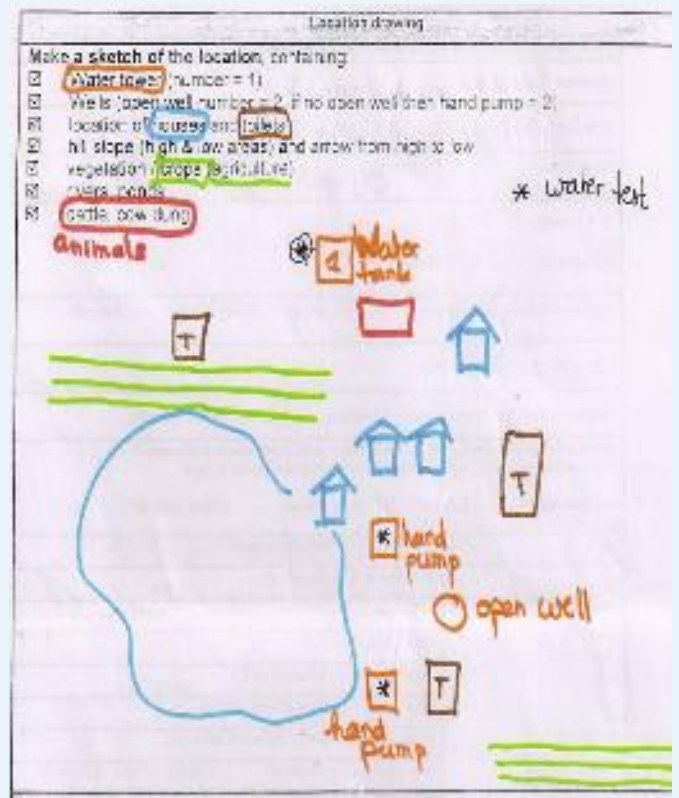 Location drawing
Make a sketch of the location, containing
Water tower (number = 1)
Wells (open well number = 2, if no open well then hand pump = 2)
location of houses and toilets
hill slope (high & low areas) and arrow from high to low
vegetation / crops (agriculture)
rivers, ponds
cattle, cow dung
animals
* water test
* 1 Water tank
T
T
* hand pump
open well
* T
hand pump